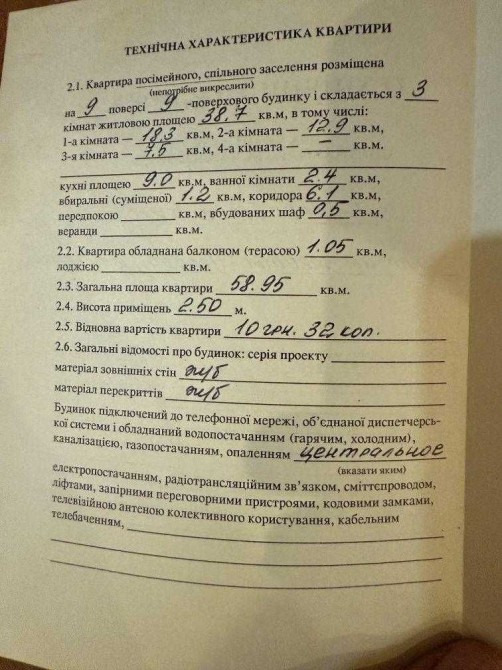 ТЕХНІЧНА ХАРАКТЕРИСТИКА КВАРТИРИ
2.1. Квартира посімейного, спільного заселення розміщена
(непотрібне викреслити)
на 9 поверсі 9 -поверхового будинку і складається з 3
кімнат житловою площею 38.7 кв.м, в тому числі:
1-а кімната — 18,3 кв.м, 2-а кімната — 12.9 кв.м,
3-я кімната — 7,5 кв.м, 4-а кімната — – кв.м.
кухні площею 9.0 кв.м, ванної кімнати 2.4 кв.м,
вбиральні (суміщеної) 1.2 кв.м, коридора 6.1 кв.м,
передпокою кв.м, вбудованих шаф 0,5 кв.м,
веранди кв.м.
2.2. Квартира обладнана балконом (терасою) 1.05 кв.м,
лоджією кв.м.
2.3. Загальна площа квартири 58.95 кв.м.
2.4. Висота приміщень 2.50 м.
2.5. Відновна вартість квартири 10 грн. 32 коп.
2.6. Загальні відомості про будинок: серія проекту
матеріал зовнішніх стін ж/б
матеріал перекриттів ж/б
Будинок підключений до телефонної мережі, об’єднаної диспетчерсь-
кої системи і обладнаний водопостачанням (гарячим, холодним),
каналізацією, газопостачанням, опаленням центральное
(вказати яким)
електропостачанням, радіотрансляційним зв’язком, сміттєпроводом,
ліфтами, запірними переговорними пристроями, кодовими замками,
телевізійною антеною колективного користування, кабельним
телебаченням,